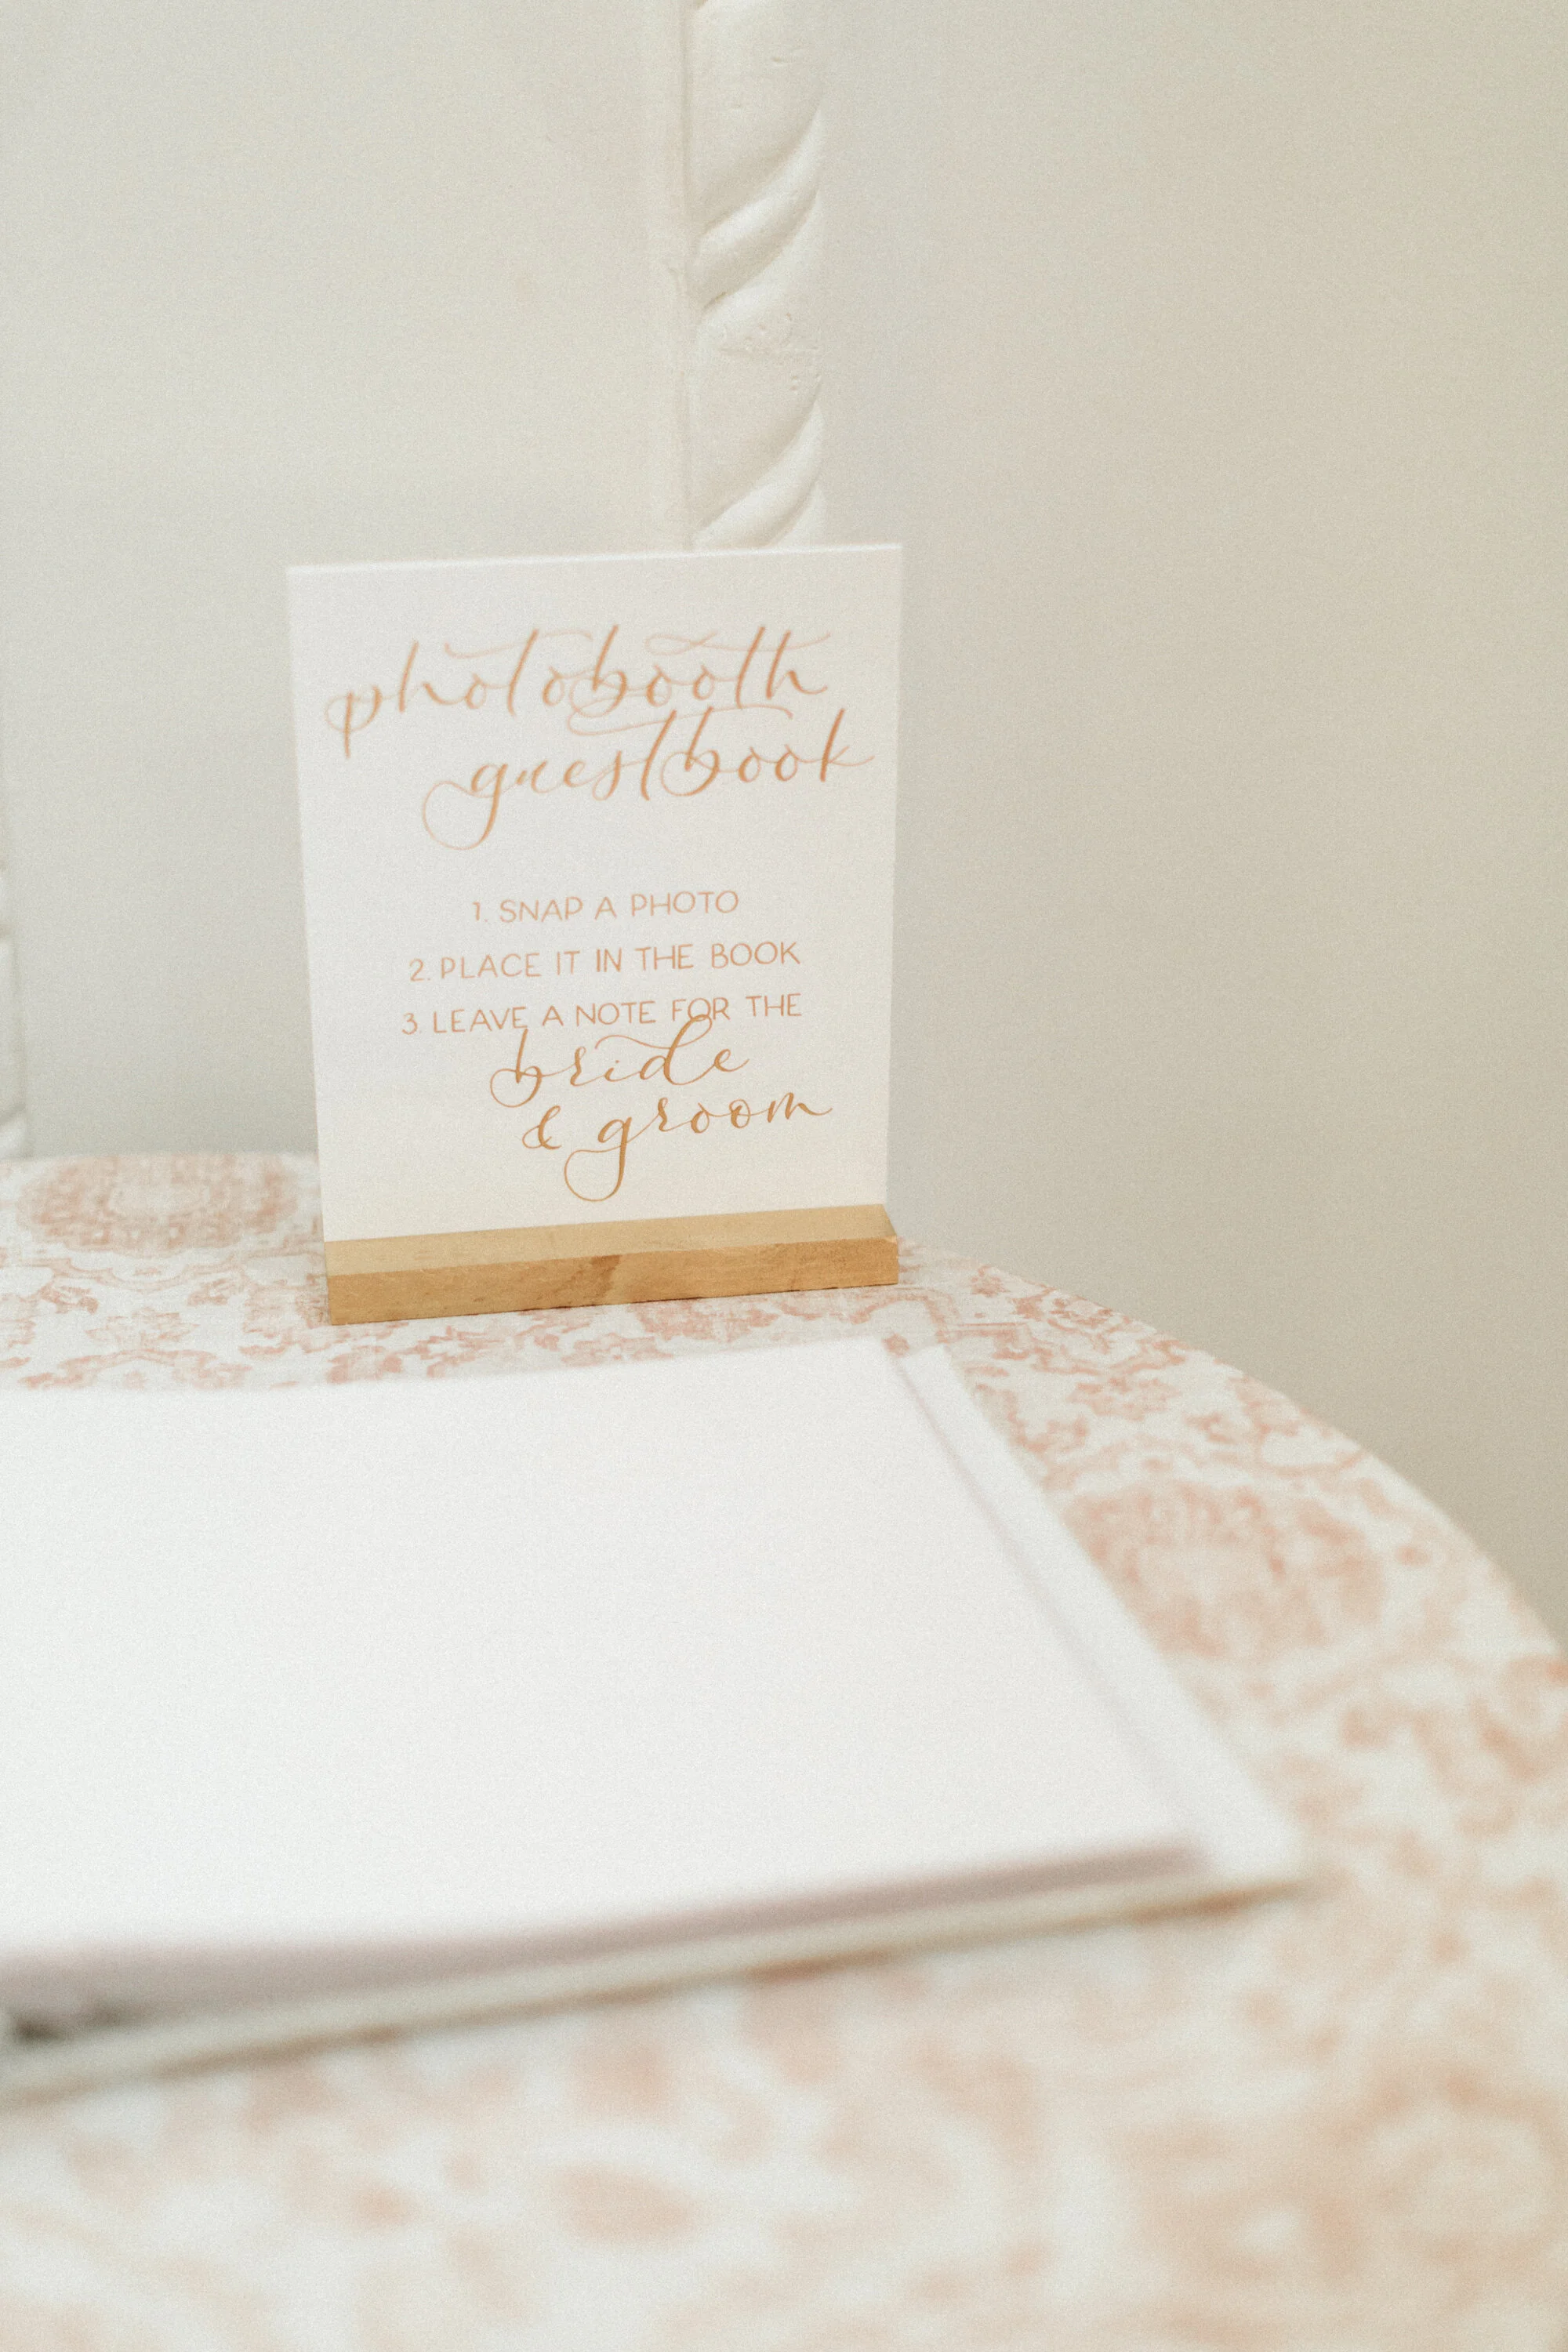 photobooth
guestbook
1. SNAP A PHOTO
2. PLACE IT IN THE BOOK
3. LEAVE A NOTE FOR THE
bride
& groom